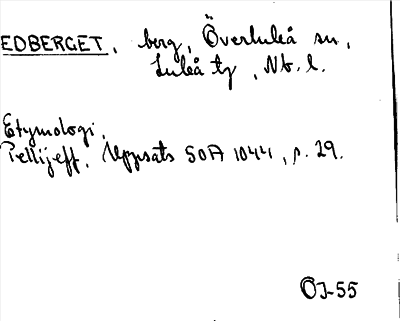 EDBERGET, berg, Överluleå sn,
Luleå tg, Nb. l.
Etymologi.
Pellijeff, Uppsats SOA 1044, s. 29.
ÖJ-55